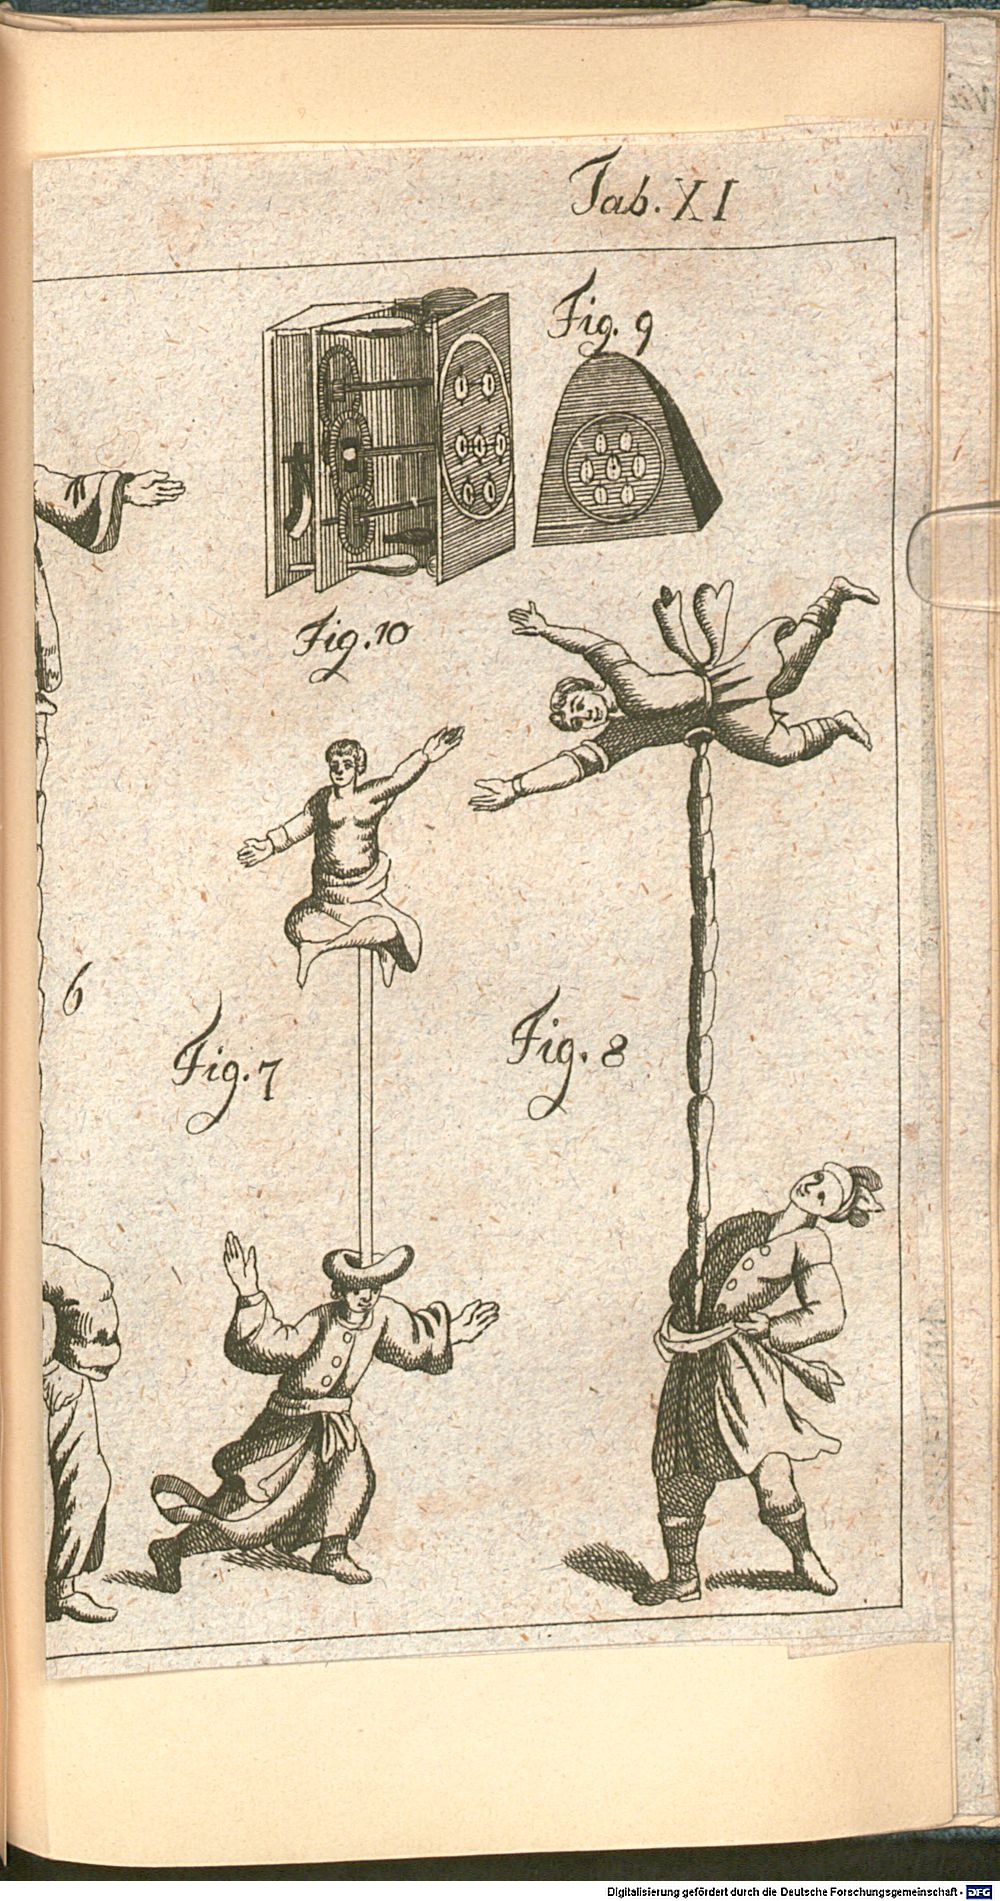 Tab. XI
Fig. 9
Fig. 10
6
Fig. 7
Fig. 8
Digitalisierung gefördert durch die Deutsche Forschungsgemeinschaft - DFG